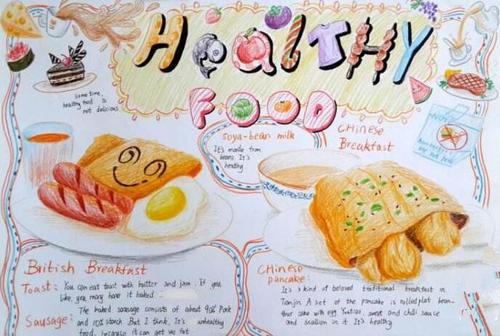 Healthy
FOOD
some time,
healthy food is
not delicious.
soya-bean milk
It's made from
beans. It's
healthy
Chinese
Breakfast
British Breakfast
Toast: You can eat toast with butter and jam. If you
like, you may have it baked.
Sausage: The baked sausage consists of about 90% Pork
and starch. But I think, It's unhealthy
food, because it can get us fat
Chinese
pancake:
It's a kind of beloved traditional breakfast in
Tianjin. A set of the pancake is rolled flat bean
flour cake with egg Youtiao sweet and chili sauce
and scallion in it. It's healthy